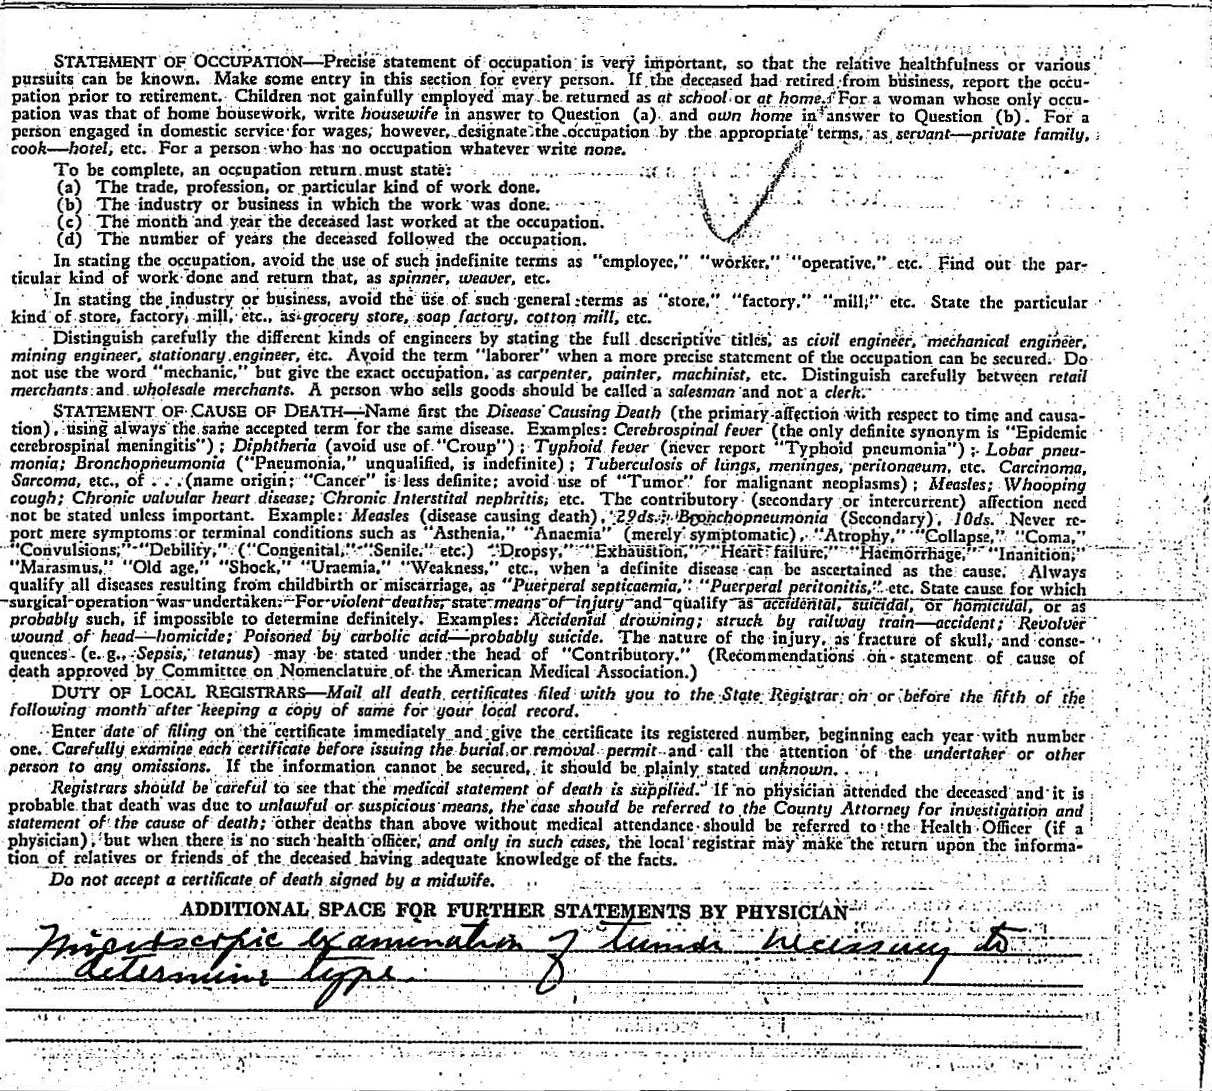 STATEMENT OF OCCUPATION—Precise statement of occupation is very important, so that the relative healthfulness or various
pursuits can be known. Make some entry in this section for every person. If the deceased had retired from business, report the occu-
pation prior to retirement. Children not gainfully employed may be returned as at school or at home. For a woman whose only occu-
pation was that of home housework, write housewife in answer to Question (a) and own home in answer to Question (b). For a
person engaged in domestic service for wages, however, designate the occupation by the appropriate terms, as servant—private family,
cook—hotel, etc. For a person who has no occupation whatever write none.
To be complete, an occupation return must state:
(a) The trade, profession, or particular kind of work done.
(b) The industry or business in which the work was done.
(c) The month and year the deceased last worked at the occupation.
(d) The number of years the deceased followed the occupation.
In stating the occupation, avoid the use of such indefinite terms as "employee," "worker," "operative," etc. Find out the par-
ticular kind of work done and return that, as spinner, weaver, etc.
In stating the industry or business, avoid the use of such general terms as "store," "factory," "mill," etc. State the particular
kind of store, factory, mill, etc., as grocery store, soap factory, cotton mill, etc.
Distinguish carefully the different kinds of engineers by stating the full descriptive titles, as civil engineer, mechanical engineer,
mining engineer, stationary engineer, etc. Avoid the term "laborer" when a more precise statement of the occupation can be secured. Do
not use the word "mechanic," but give the exact occupation, as carpenter, painter, machinist, etc. Distinguish carefully between retail
merchants and wholesale merchants. A person who sells goods should be called a salesman and not a clerk.
STATEMENT OF CAUSE OF DEATH—Name first the Disease Causing Death (the primary affection with respect to time and causa-
tion), using always the same accepted term for the same disease. Examples: Cerebrospinal fever (the only definite synonym is "Epidemic
cerebrospinal meningitis"); Diphtheria (avoid use of "Croup"); Typhoid fever (never report "Typhoid pneumonia"); Lobar pneu-
monia; Bronchopneumonia ("Pneumonia," unqualified, is indefinite); Tuberculosis of lungs, meninges, peritonaeum, etc. Carcinoma,
Sarcoma, etc., of . . . (name origin; "Cancer" is less definite; avoid use of "Tumor" for malignant neoplasms); Measles; Whooping
cough; Chronic valvular heart disease; Chronic Interstital nephritis; etc. The contributory (secondary or intercurrent) affection need
not be stated unless important. Example: Measles (disease causing death), 29ds.; Bronchopneumonia (Secondary), 10ds. Never re-
port mere symptoms or terminal conditions such as "Asthenia," "Anaemia" (merely symptomatic), "Atrophy," "Collapse," "Coma,"
"Convulsions," "Debility," ("Congenital," "Senile," etc.) "Dropsy," "Exhaustion," "Heart failure," "Haemorrhage," "Inanition,"
"Marasmus," "Old age," "Shock," "Uraemia," "Weakness," etc., when a definite disease can be ascertained as the cause. Always
qualify all diseases resulting from childbirth or miscarriage, as "Puerperal septicaemia," "Puerperal peritonitis," etc. State cause for which
surgical operation was undertaken. For violent deaths, state means of injury and qualify as accidental, suicidal, or homicidal, or as
probably such, if impossible to determine definitely. Examples: Accidental drowning; struck by railway train—accident; Revolver
wound of head—homicide; Poisoned by carbolic acid—probably suicide. The nature of the injury, as fracture of skull, and conse-
quences (e. g., Sepsis, tetanus) may be stated under the head of "Contributory." (Recommendations on statement of cause of
death approved by Committee on Nomenclature of the American Medical Association.)
DUTY OF LOCAL REGISTRARS—Mail all death certificates filed with you to the State Registrar on or before the fifth of the
following month after keeping a copy of same for your local record.
Enter date of filing on the certificate immediately and give the certificate its registered number, beginning each year with number
one. Carefully examine each certificate before issuing the burial or removal permit and call the attention of the undertaker or other
person to any omissions. If the information cannot be secured, it should be plainly stated unknown.
Registrars should be careful to see that the medical statement of death is supplied. If no physician attended the deceased and it is
probable that death was due to unlawful or suspicious means, the case should be referred to the County Attorney for investigation and
statement of the cause of death; other deaths than above without medical attendance should be referred to the Health Officer (if a
physician), but when there is no such health officer, and only in such cases, the local registrar may make the return upon the informa-
tion of relatives or friends of the deceased having adequate knowledge of the facts.
Do not accept a certificate of death signed by a midwife.
ADDITIONAL SPACE FOR FURTHER STATEMENTS BY PHYSICIAN
Microscopic examination of tumor necessary to
determine type.